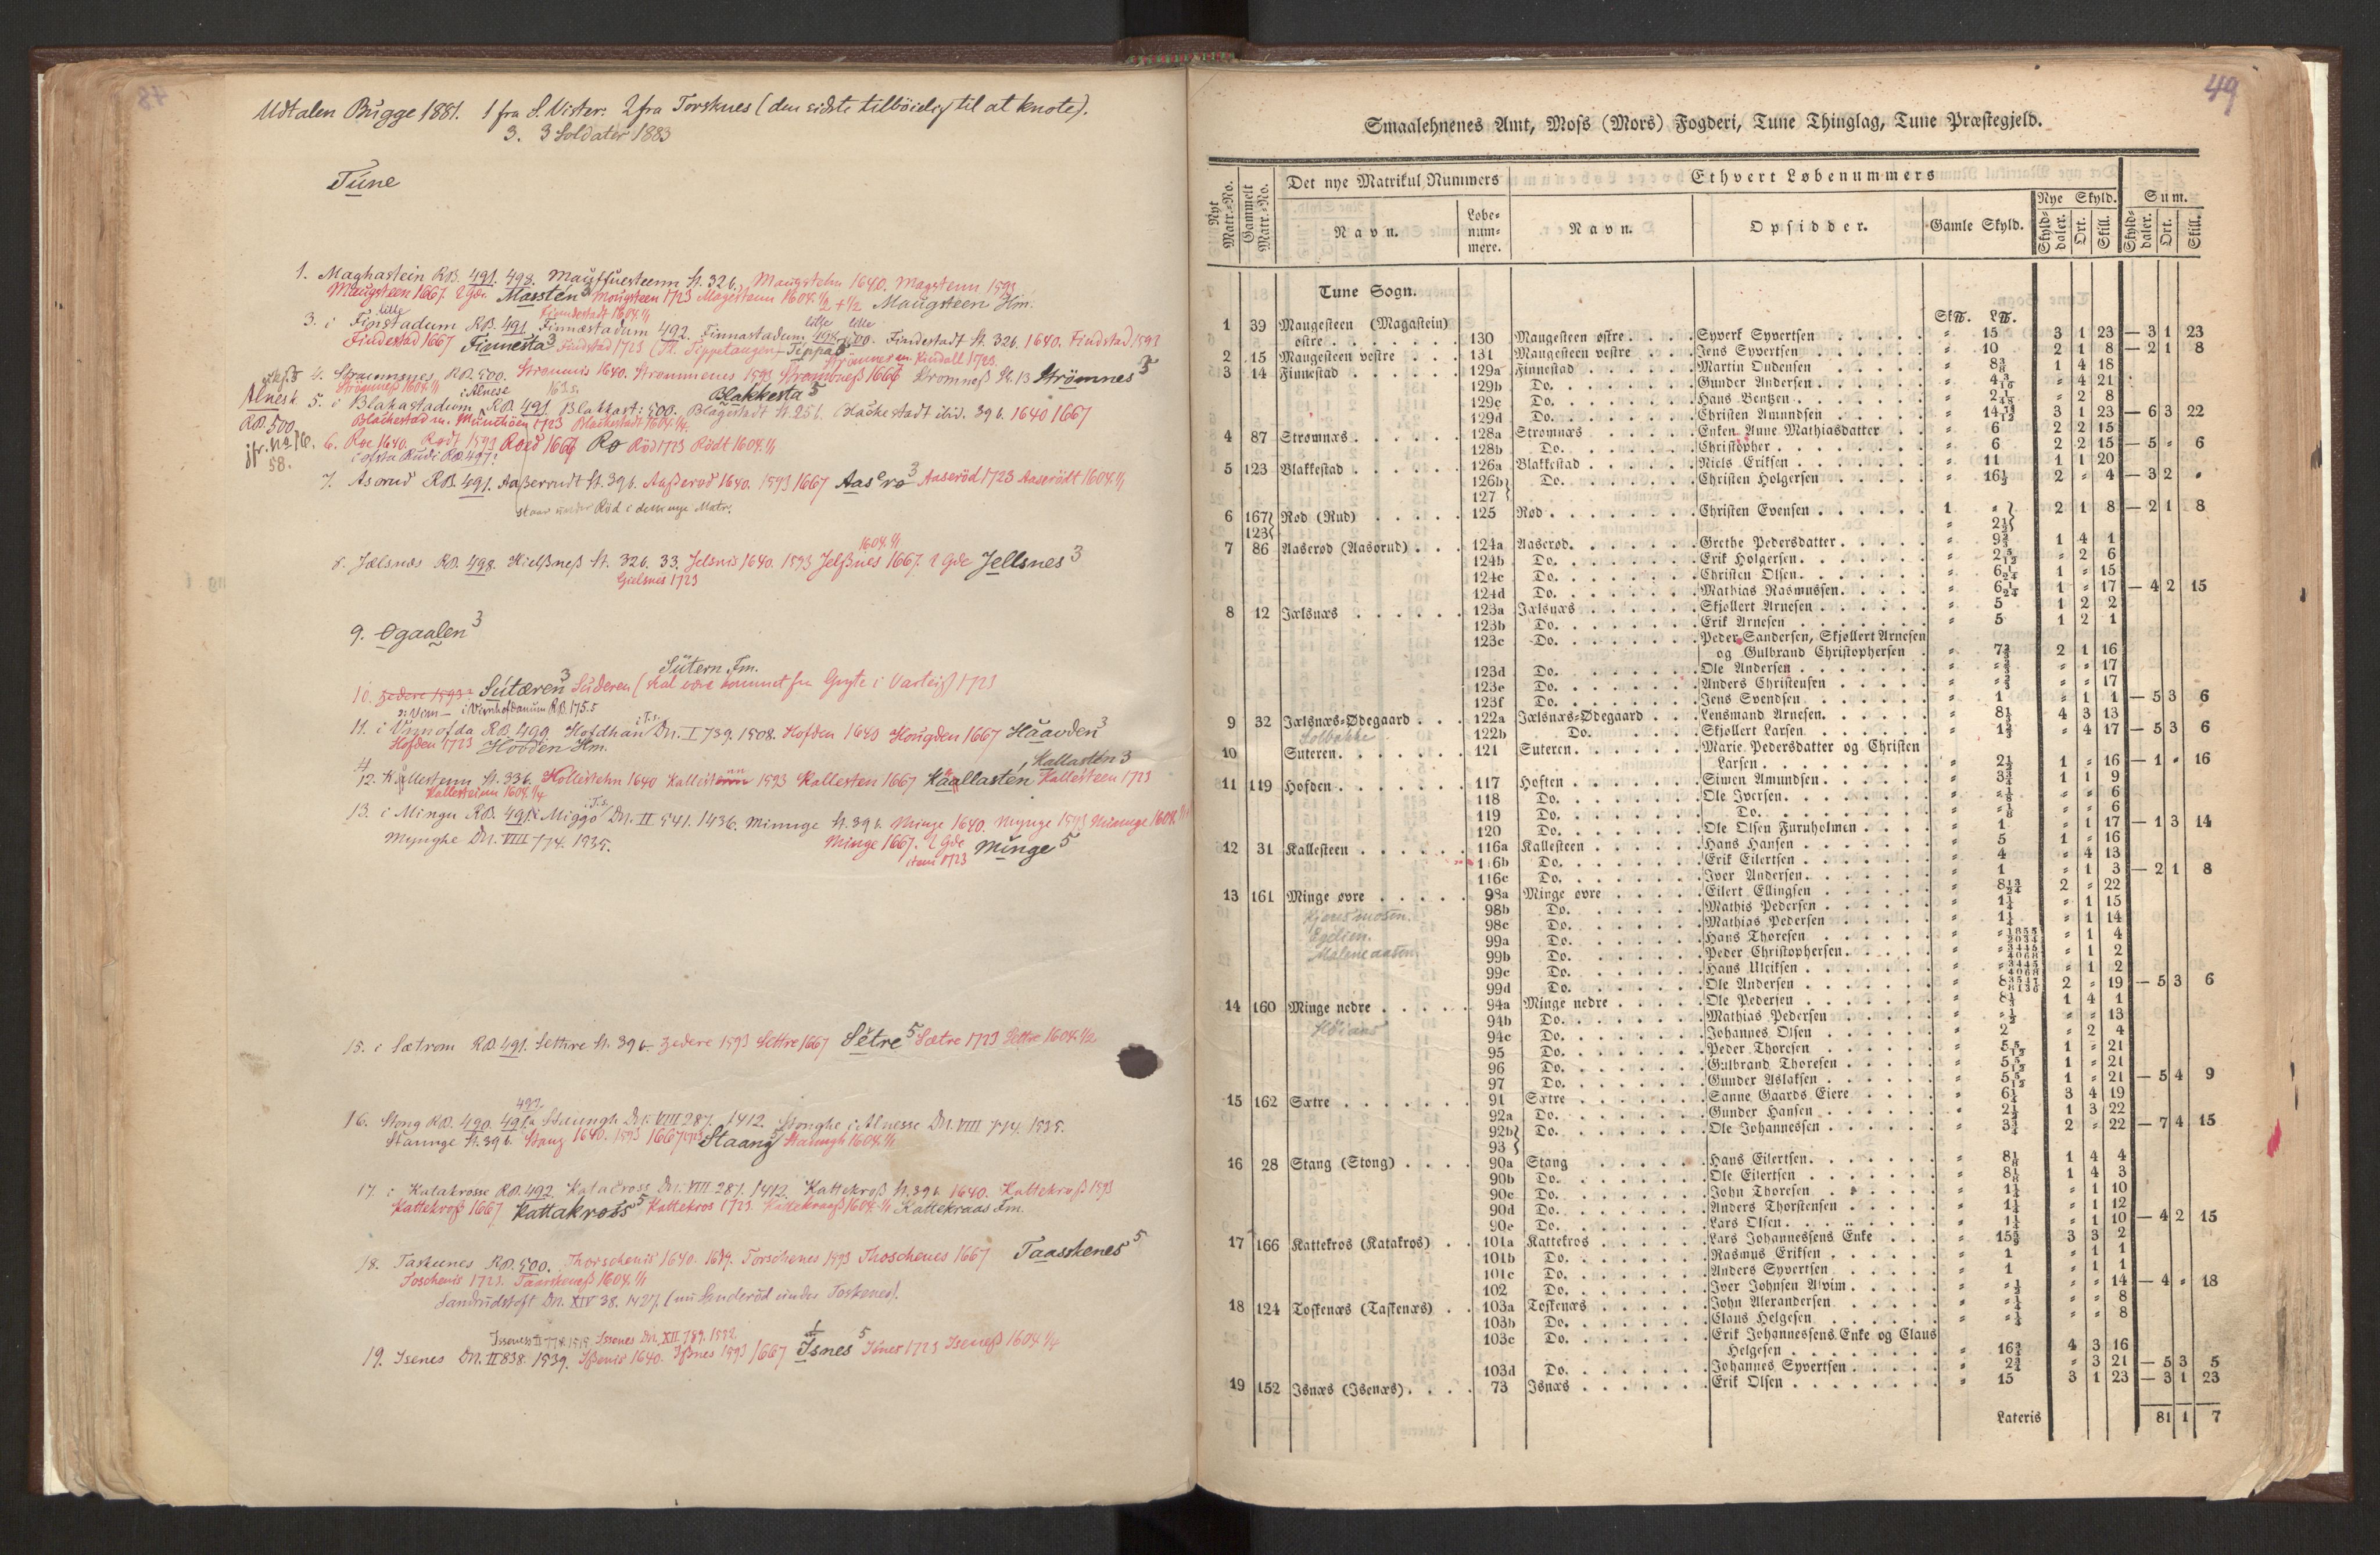 Udtalen Bugge 1881. 1 fra S. Vister. 2 fra Torsknes (den sidste tilböielig til at knote).
3. 3 Soldater 1883
Tune
1. Maghastein RB. 491. 498. Mauffuesteenn St. 32 b. Maugstehn 1640. Magstenn 1593
Maugsteen 1667. 2 Gde. Massten 3 Mougsteen 1723 Magestenn 1604. 1/2 + 1/2 Maugsteen Hm.
Finndestadt 1604. 1/1
3. i Finstadum RB. 491. Finnæstadum 492. Finnastadum 498. 500. Findestadt St. 32 b. 1640. Findstad 1593
Findestad 1667 Finnesta 3 Findstad 1723
4. Straumsnes RB. 500. Strommis 1640. Strommenes 1593 Strombness 1666 Stromness St. 13 Strömnes 3
Strömness 1604. 1/1
Blakkesta 5
5. i Blakastadum RB. 491. Blakkast: 500. Blagestadt St. 25 b. Blackestadt ibid. 39 b. 1640 1667
Alnesk
RB. 500.
jfr. No. 16.
58.
Blackestad m. Munthöen 1723 Blackestadt 1604. 1/4
6. Roe 1640. Rodt 1593 Roed 1666 Rø Röd 1723 Rödt 1604. 1/1
i østa Rudi RB 497?
7. Asorud RB. 491. Aasserrudt St. 39 b. Aasserod 1640. 1593 1667 Aaserø 3 Aaseröd 1723 Aaserödt 1604. 1/1
staar under Röd i den nye Matr.
1604. 1/1
8. Jælsnæs RB. 498. Hielssness St. 32 b. 33. Jelsnis 1640. 1593 Jelssnes 1667. 2 Gde Jellsnes 3
Gielsnes 1723
9. Øgaalen 3
Sütern Fm.
10. Zedere 1593? Sutæren 3 Suderen (skal være kommet fra Gryte i Varteig) 1723
i Vinnhofdanum RB. 175.5
11. i Vinnofda RB. 499 Hofdhan Dn. I 739. 1508. Hofden 1640 Hougden 1667 Haavden 3
Hofden 1723 Hovden Hm.
Kallastén 3
12. Kallestenn St. 33 b. Kollestehn 1640 Kallestenn 1593 Kallesten 1667 Kaallastén Kallesteen 1723
Kallesteinn 1604. 1/4
13. i Mingu RB. 491. Miggo Dn. II 541. 1436. Minnge St. 39 b. Minge 1640. Mynge 1593 Minnge 1604.
Mynghe Dn. VIII 774. 1535. Minge 1667. 2 Gde Minge 5
item 1723
15. i Sætrom RB. 491. Settere St. 39 b. Zedere 1593 Settre 1667 Sétre 5 Sætre 1723 Settre 1604. 1/2
492.
16. Stong RB. 490. 491. Staungh Dn. VIII 287. 1412. Stonghe i Alnesse Dn. VIII 774. 1535.
Staunge St. 39 b. Stang 1640. 1593 1667 1723 Staang 5 Staungh 1604. 1/1
17. i Katakrosse RB. 492. Katacross Dn. VIII 287. 1412. Kattekross St. 39 b. 1640. Kattekross 1593
Kattekross 1667 Kattakross 5 Kattekros 1723. Kattekraass 1604. 1/1 Kattekraas Fm.
18. Taskenes RB. 500. Thorschenis 1640. 1639. Torschenes 1593 Thoschenes 1667 Taaskenes 5
Toschenis 1723. Taaskeness 1604. 1/1
Sandrudstoft Dn. XIV 38. 1427. (nu Sanderöd under Toskenes).
Isseness II 778. 1515. Issenes Dn. XII 789. 1592.
19. Isenes Dn. II 838. 1539. Issenis 1640. Issnes 1593 1667 Isnes 5 Isnes 1723 Iseness 1604 1/4
49
Smaalehnenes Amt, Moss (Mors) Fogderi, Tune Thinglag, Tune Præstegjeld.
Nyt Matr.-No. Gammelt Matr.-No. Det nye Matrikul Nummers Ethvert Løbenummers
Navn. Løbenummere. Navn. Opsidder. Gamle Skyld. Nye Skyld. Sum.
Skylddaler. Ort. Skill. Skylddaler. Ort. Skill.
Tune Sogn.
1 39 Maugesteen (Magastein)
østre 130 Maugesteen østre Syverk Syvertsen " 15 3 1 23 — 3 1 23
2 15 Maugesteen vestre 131 Maugesteen vestre Jens Syvertsen " 10 2 1 8 — 2 1 8
3 14 Finnestad 129a Finnestad Martin Oudensen " 8 3/8 1 4 18
129b Do. Gunder Andersen " 4 3/16 " 4 21
129c Do. Hans Bentzen " 2 " 2 8
129d Do. Christen Amundsen " 14 3 1 23 — 6 3 22
4 87 Strømnæs 128a Strømnæs Enken Anne Mathiasdatter " 6 2 2 15
128b Do. Christopher " 6 2 2 15 — 5 " 6
5 123 Blakkestad 126a Blakkestad Niels Eriksen " 11 1 1 20
126b Do. Christen Holgersen " 16 1/2 2 " 4 — 3 2 "
127
6 167 Rød (Rud) 125 Rød Christen Evensen 1 " 2 1 8 — 2 1 8
123 " 2 1/2
7 86 Aaserød (Aasorud) 124a Aaserød Grethe Pedersdatter " 9 2/3 1 4 1
124b Do. Erik Holgersen " 2 5/12 " 2 6
124c Do. Christen Olsen " 6 1/24 1 " 15
124d Do. Mathias Rasmussen " 6 1/24 1 " 17 — 4 2 15
8 12 Jælsnæs 123a Jælsnæs Skjøllert Arnesen " 5 1 2 2
123b Do. Erik Arnesen " 5 1 2 1
123c Do. Peder Sandersen, Skjøllert Arnesen
og Gulbrand Christophersen " 7 2/3 2 1 16
123d Do. Ole Andersen " " 2/3 " " 17
123e Do. Anders Christensen " " 2/3 " " 17
123f Do. Jens Svendsen " 1 " 1 1 — 5 3 6
9 32 Jælsnæs-Ødegaard 122a Jælsnæs-Ødegaard Lensmand Arnesen " 8 1/2 4 3 13
Solbakke 122b Do. Skjøllert Larsen " 1 2/3 " 4 17 — 5 3 6
10 Suteren 121 Suteren Marie Pedersdatter og Christen
Larsen " 2 1/2 1 " 16 — 1 " 16
11 119 Hofden 117 Hoften Simen Amundsen " 3 3/4 1 1 9
118 Do. Ole Iversen " " 1/8 " " 6
119 Do. Do. " " 1/8 " " 6
120 Do. Ole Olsen Furuholmen " 1 " 1 17 — 1 3 14
12 31 Kallesteen 116a Kallesteen Hans Hansen " 5 1 " 16
116b Do. Erik Eilertsen " 4 " 4 13
116c Do. Iver Andersen " 1 " 1 3 — 2 1 8
13 161 Minge øvre 98a Minge øvre Eilert Ellingsen " 8 13/24 2 " 22
98b Do. Mathis Pedersen " 1 1/4 " 1 15
Egelien 98c Do. Mathias Pedersen " 1 1/4 " 1 14
99a Do. Hans Thoresen " " 1855/2034 " 1 4
Maleneaasen 99b Do. Peder Christophersen " " 3445/4068 " 1 2
99c Do. Hans Ulriksen " " 3445/4068 " 1 2
99d Do. Ole Andersen " 8 3517/8136 2 " 19 — 5 3 6
14 160 Minge nedre 94a Minge nedre Ole Pedersen " 8 1/3 1 4 1
94b Do. Mathias Pedersen " " 1/2 " " 13
94c Do. Johannes Olsen " 2 " 2 4
95 Do. Peder Thoresen " 5 5/12 1 " 21
96 Do. Gulbrand Thoresen " 5 5/12 1 " 21
97 Do. Gunder Aslaksen " 5 5/12 1 " 21 — 5 4 9
15 162 Sætre 91 Sætre Sanne Gaards Eiere " 6 1/4 3 4 19
92a Do. Gunder Hansen " 2 1/2 1 3 22
92b Do. Ole Johannessen " 3 3/4 2 " 22 — 7 4 15
93
16 28 Stang (Stong) 90a Stang Hans Eilertsen " 8 1/8 1 4 4
90b Do. Ole Eilertsen " 8 1/8 1 4 3
90c Do. John Thoresen " 1 1/4 " 1 10
90d Do. Anders Thorstensen " 1 1/4 " 1 12
90e Do. Lars Olsen " 1 1/4 " 1 10 — 4 2 15
17 166 Kattekros (Katakros) 101a Kattekros Lars Johannessens Enke " 15 3 3 2
101b Do. Rasmus Eriksen " 1 " 1 1
101c Do. Anders Syvertsen " 1 " 1 1
102 Do. Iver Johnsen Alvim " " 1/2 " " 14 — 4 " 18
18 124 Toskenæs (Taskenæs) 103a Toskenæs John Alexandersen " " 1/4 " " 8
103b Do. Claus Helgesen " " 1/4 " " 8
103c Do. Erik Johannessens Enke og Claus
Helgesen " 16 3/4 4 3 16
103d Do. Johannes Syvertsen " 2 3/4 " 3 21 — 5 3 5
19 152 Isnæs (Isenæs) 73 Isnæs Erik Olsen " 15 3 1 23 — 3 1 23
Lateris 81 1 7